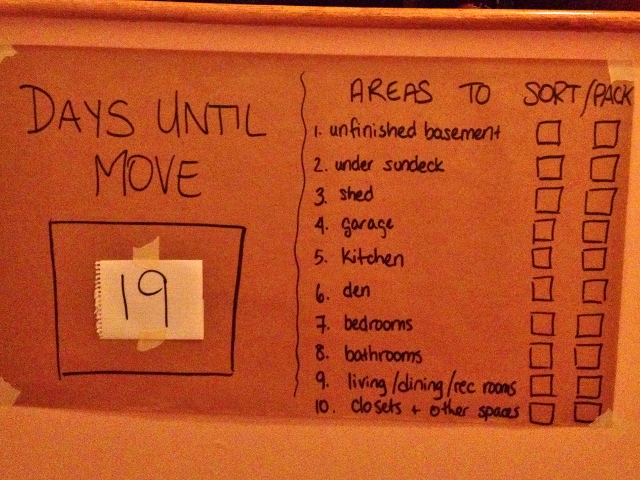 DAYS UNTIL
MOVE
19
AREAS TO SORT/PACK
1. unfinished basement
2. under sundeck
3. shed
4. garage
5. kitchen
6. den
7. bedrooms
8. bathrooms
9. living/dining/rec rooms
10. closets + other spaces